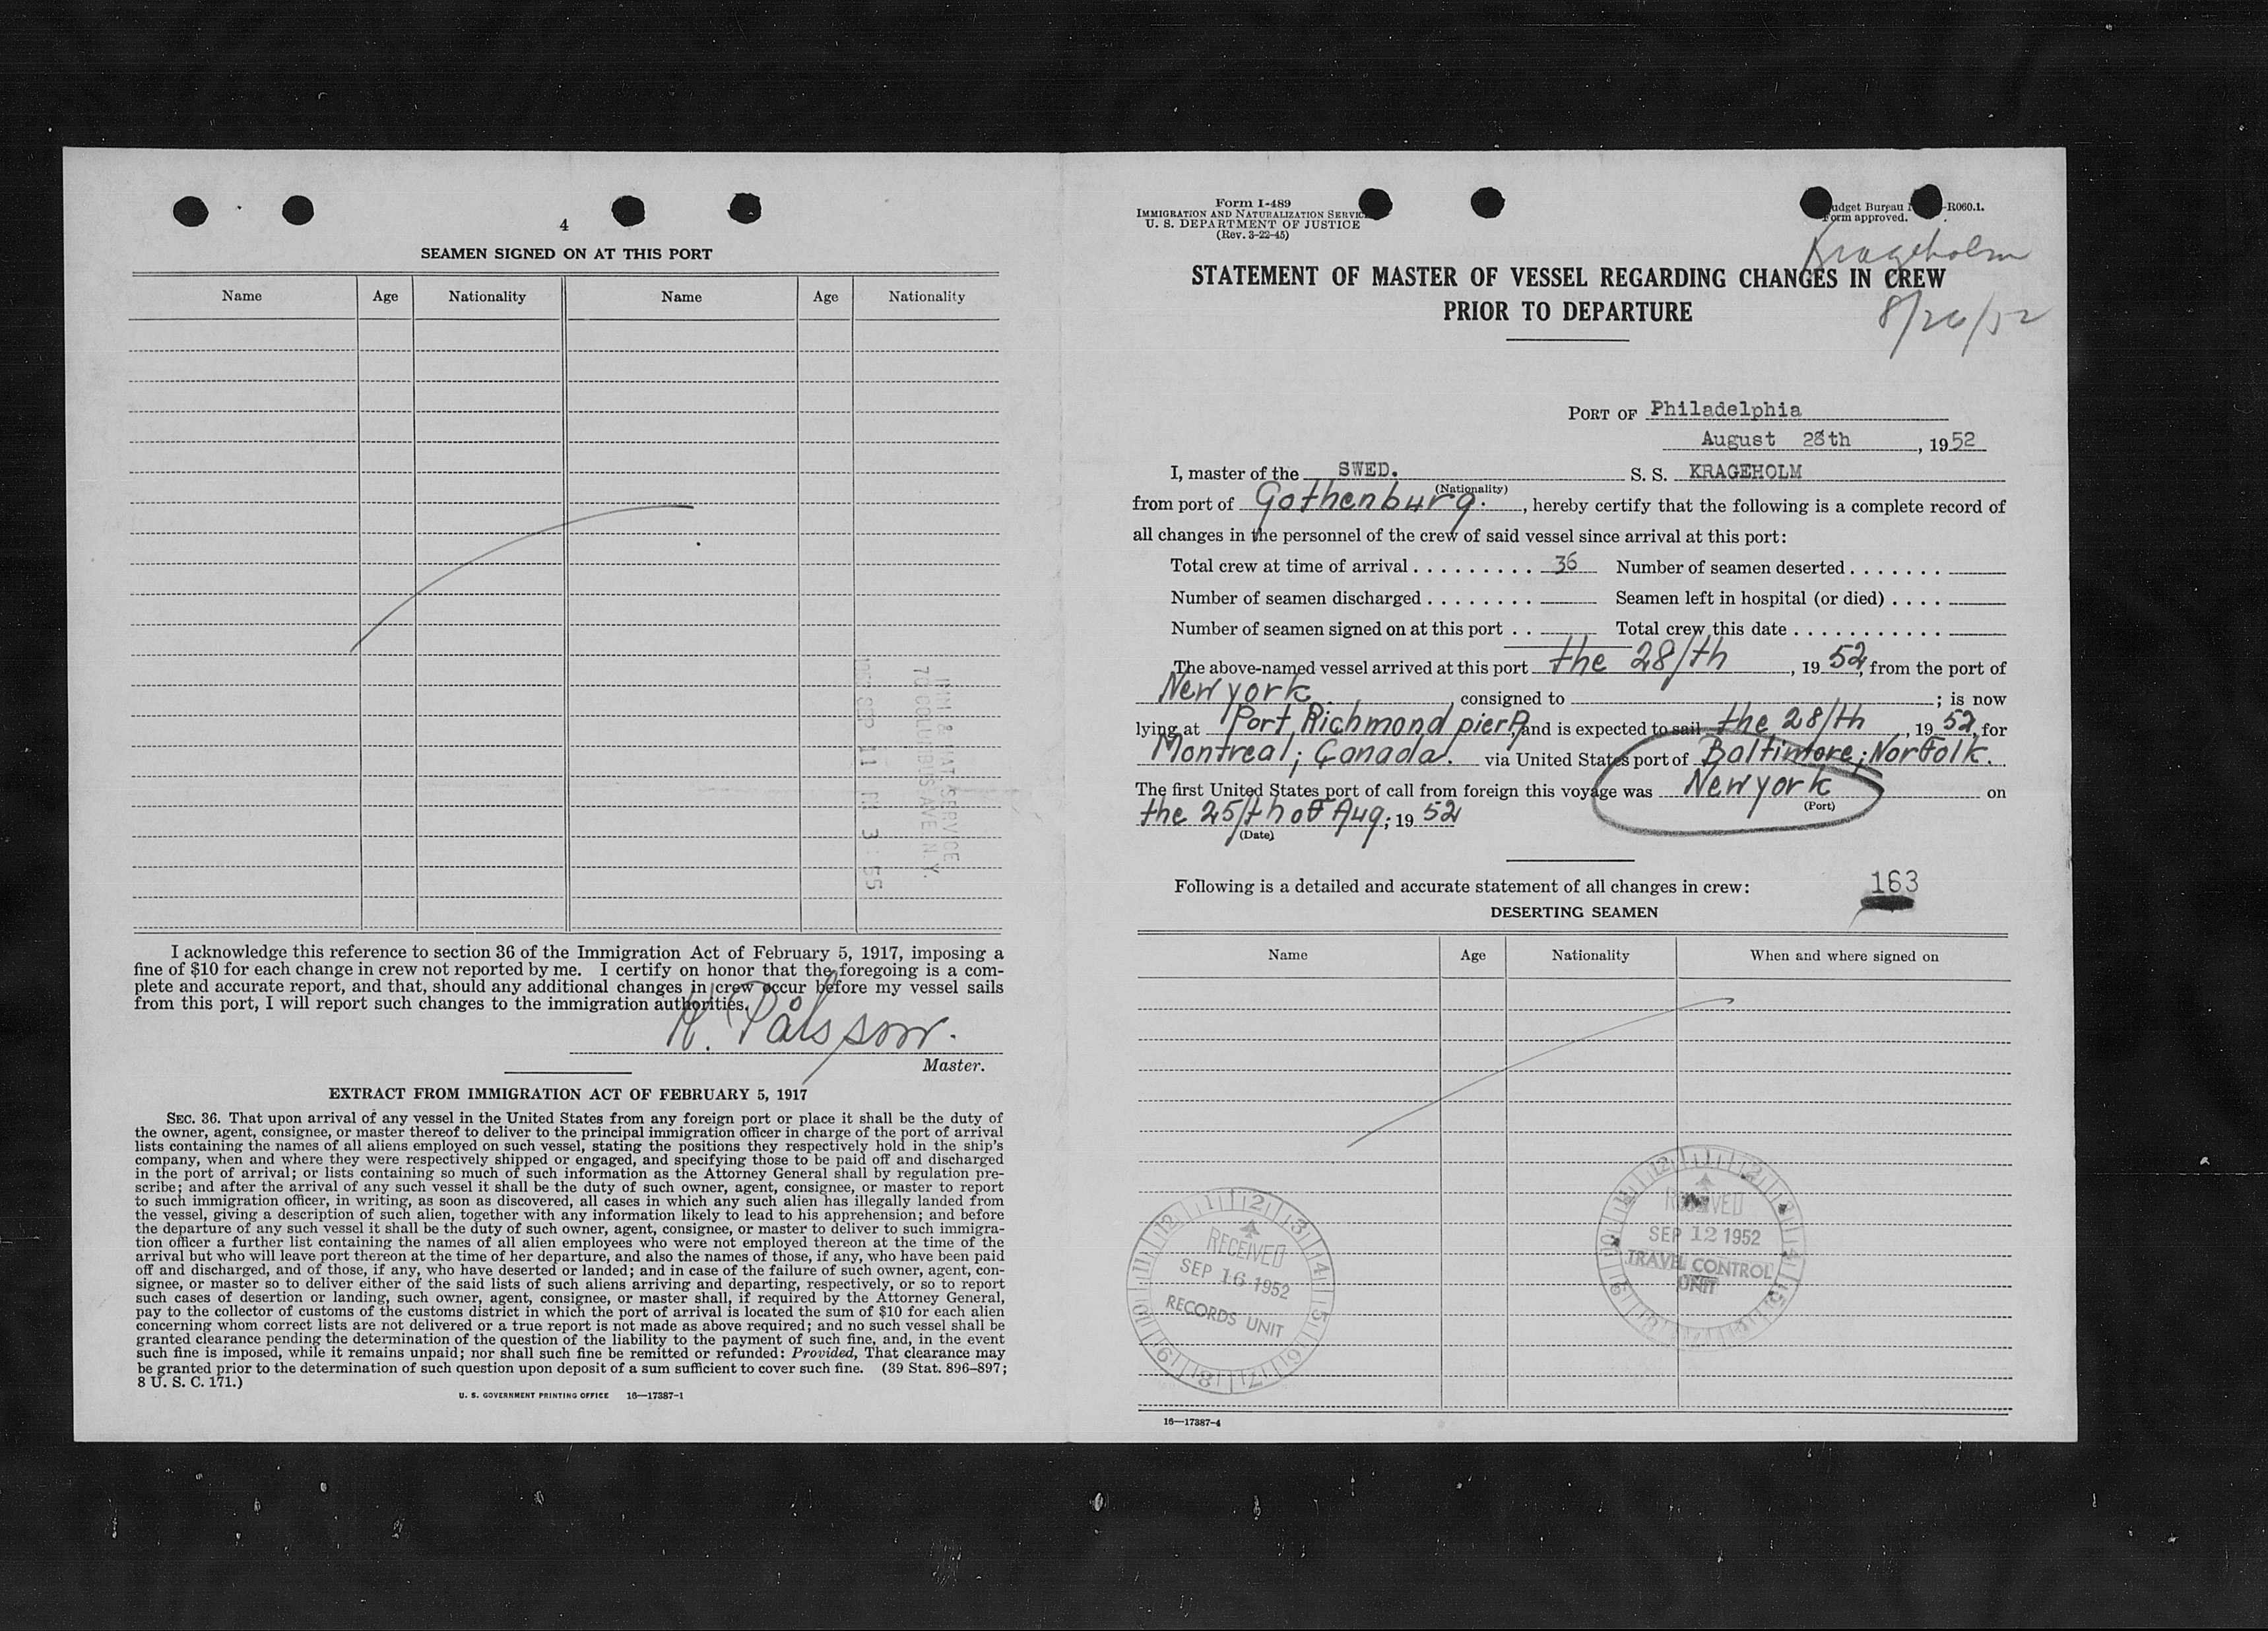 4
SEAMEN SIGNED ON AT THIS PORT
Name Age Nationality Name Age Nationality
IMM & NAT. SERVICE
70 COLUMBUS AVE N.Y.
1952 SEP 11 PM 3:55
I acknowledge this reference to section 36 of the Immigration Act of February 5, 1917, imposing a
fine of $10 for each change in crew not reported by me. I certify on honor that the foregoing is a com-
plete and accurate report, and that, should any additional changes in crew occur before my vessel sails
from this port, I will report such changes to the immigration authorities.
K. Pålsson.
Master.
EXTRACT FROM IMMIGRATION ACT OF FEBRUARY 5, 1917
SEC. 36. That upon arrival of any vessel in the United States from any foreign port or place it shall be the duty of
the owner, agent, consignee, or master thereof to deliver to the principal immigration officer in charge of the port of arrival
lists containing the names of all aliens employed on such vessel, stating the positions they respectively hold in the ship's
company, when and where they were respectively shipped or engaged, and specifying those to be paid off and discharged
in the port of arrival; or lists containing so much of such information as the Attorney General shall by regulation pre-
scribe; and after the arrival of any such vessel it shall be the duty of such owner, agent, consignee, or master to report
to such immigration officer, in writing, as soon as discovered, all cases in which any such alien has illegally landed from
the vessel, giving a description of such alien, together with any information likely to lead to his apprehension; and before
the departure of any such vessel it shall be the duty of such owner, agent, consignee, or master to deliver to such immigra-
tion officer a further list containing the names of all alien employees who were not employed thereon at the time of the
arrival but who will leave port thereon at the time of her departure, and also the names of those, if any, who have been paid
off and discharged, and of those, if any, who have deserted or landed; and in case of the failure of such owner, agent, con-
signee, or master so to deliver either of the said lists of such aliens arriving and departing, respectively, or so to report
such cases of desertion or landing, such owner, agent, consignee, or master shall, if required by the Attorney General,
pay to the collector of customs of the customs district in which the port of arrival is located the sum of $10 for each alien
concerning whom correct lists are not delivered or a true report is not made as above required; and no such vessel shall be
granted clearance pending the determination of the question of the liability to the payment of such fine, and, in the event
such fine is imposed, while it remains unpaid; nor shall such fine be remitted or refunded: Provided, That clearance may
be granted prior to the determination of such question upon deposit of a sum sufficient to cover such fine. (39 Stat. 896–897;
8 U. S. C. 171.)
U. S. GOVERNMENT PRINTING OFFICE 16—17387-1
Form I-489
IMMIGRATION AND NATURALIZATION SERVICE
U. S. DEPARTMENT OF JUSTICE
(Rev. 3-22-45)
Budget Bureau -R060.1.
Form approved.
Krageholm
STATEMENT OF MASTER OF VESSEL REGARDING CHANGES IN CREW
PRIOR TO DEPARTURE
8/26/52
PORT OF Philadelphia
August 28th, 1952
I, master of the SWED. S. S. KRAGEHOLM
(Nationality)
from port of Gothenburg., hereby certify that the following is a complete record of
all changes in the personnel of the crew of said vessel since arrival at this port:
Total crew at time of arrival .......... 36 Number of seamen deserted .......
Number of seamen discharged ........ Seamen left in hospital (or died) ....
Number of seamen signed on at this port .. Total crew this date ...........
The above-named vessel arrived at this port the 28/th, 1952, from the port of
Newyork. consigned to ; is now
lying at Port Richmond pier and is expected to sail the 28/th, 1952, for
Montreal; Canada. via United States port of Baltimore; Norfolk.
The first United States port of call from foreign this voyage was Newyork on
(Port)
the 25/th of Aug; 1952
(Date)
Following is a detailed and accurate statement of all changes in crew: 163
DESERTING SEAMEN
Name Age Nationality When and where signed on
RECEIVED
SEP 16 1952
RECORDS UNIT
RECEIVED
SEP 12 1952
TRAVEL CONTROL
UNIT
16—17387-4